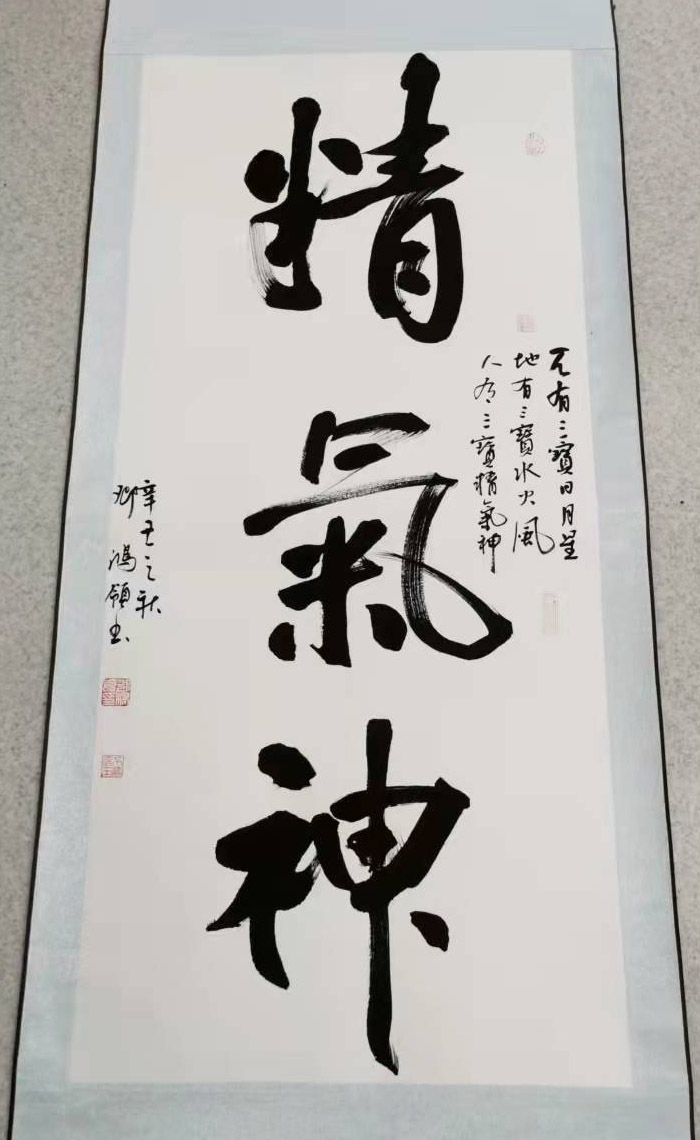 天有三寶日月星
地有三寶水火風
人有三寶精氣神
精氣神
辛丑之秋
鴻領書